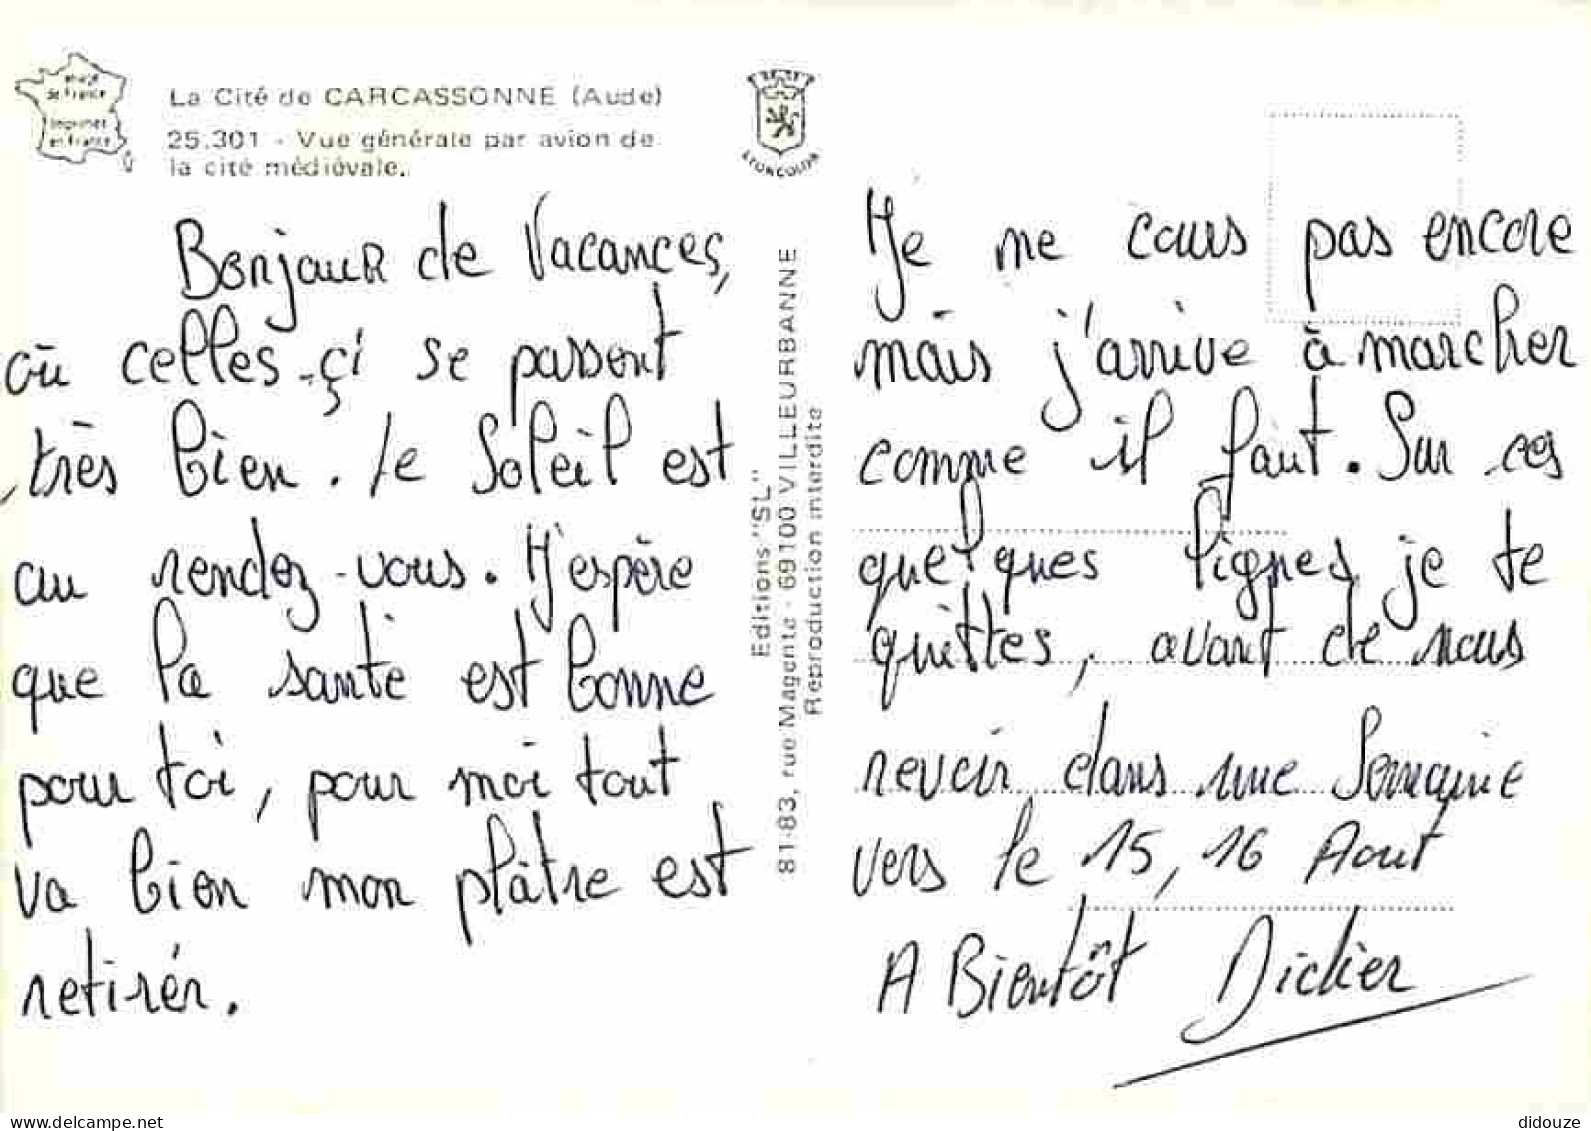 image
de France
imprimée
en France
La Cité de CARCASSONNE (Aude)
25.301 - Vue générale par avion de
la cité médiévale.
LYONCOLOR
Bonjour de Vacances,
où celles-çi se passent
très bien. Le Soleil est
au rendez-vous. J'espère
que la santé est bonne
pour toi, pour moi tout
va bien mon plâtre est
retirér.
Editions "SL"
81-83, rue Magenta - 69100 VILLEURBANNE
Reproduction interdite
Je me cours pas encore
mais j'arrive à marcher
comme il faut. Sur ces
quelques lignes, je te
quittes, avant de nous
revoir dans une Semaine
vers le 15, 16 Aout
A Bientôt Didier
delcampe.net
didouze